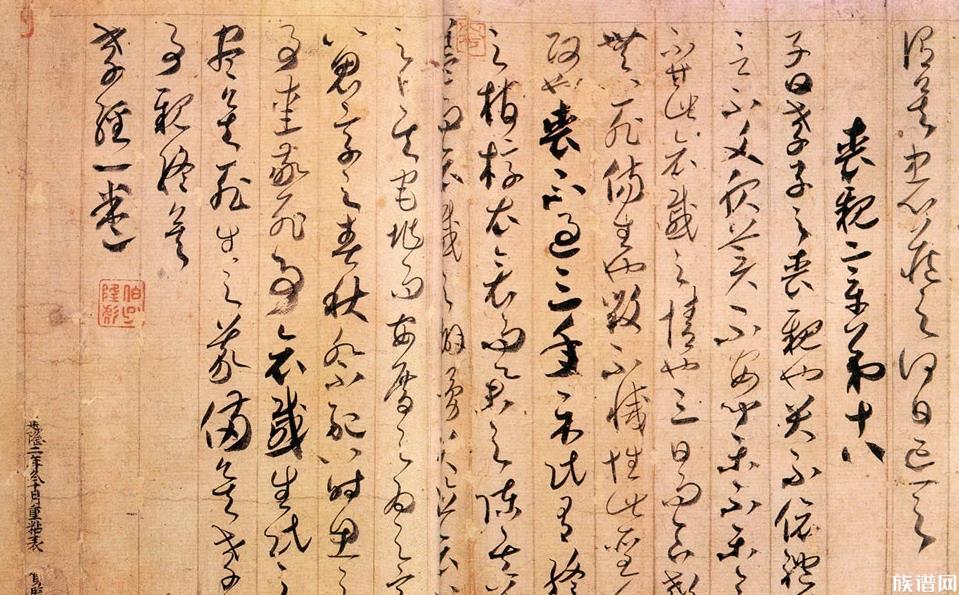 謂矣中心藏之何日忘之
喪親章第十八
子曰孝子之喪親也哭不偯禮
言不文服美不安聞樂不樂食
不甘此哀慼之情也三日而食教
無以死傷生也毀不滅性此聖
政也喪不過三年示民有終
之棺椁衣衾而舉之陳其簠
簋而哀慼之擗踴哭泣哀以
之卜其宅兆而安厝之為之宗
以鬼享之春秋祭祀以時思之
事愛敬死事哀慼生民之
盡矣死生之義備矣孝子
事親終矣
孝經一卷
建隆二年冬十月重粘表
族谱网